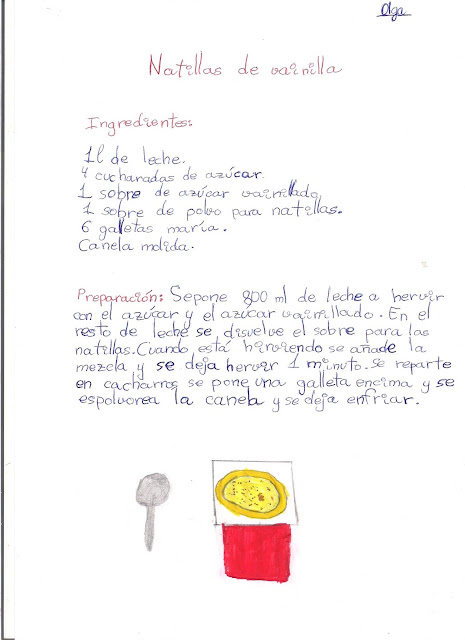 Olga
Natillas de vainilla
Ingredientes:
1l de leche.
4 cucharadas de azúcar.
1 sobre de azúcar vainillado
1 sobre de polvo para natillas.
6 galletas maría.
Canela molida.
Preparación: Sepone 800 ml de leche a hervir
con el azúcar y el azúcar vainillado. En el
resto de leche se disuelve el sobre para las
natillas. Cuando está hirviendo se añade la
mezcla y se deja hervir 1 minuto. se reparte
en cacharros se pone una galleta encima y se
espolvorea la canela y se deja enfriar.